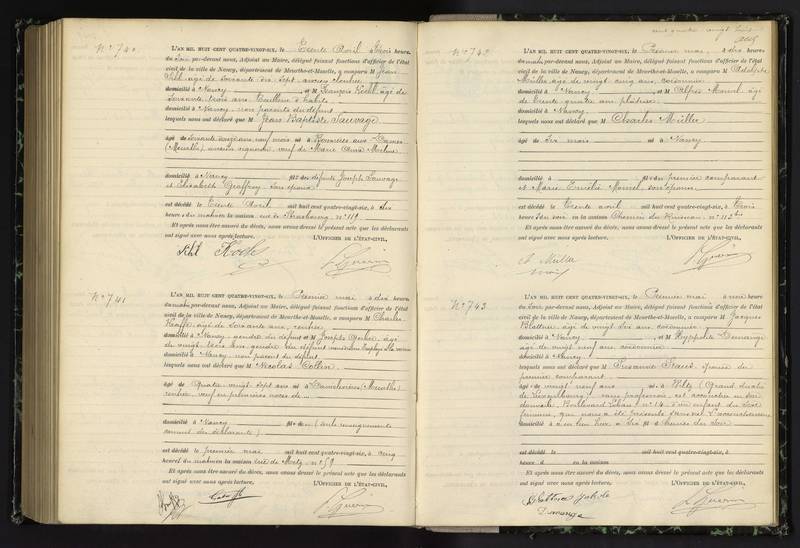 cent quatre-vingt trois
N° 740
L'AN MIL HUIT CENT QUATRE-VINGT-SIX, le Trente Avril, à trois heures
du soir, par-devant nous, Adjoint au Maire, délégué faisant fonctions d'officier de l'état
civil de la ville de Nancy, département de Meurthe-et-Moselle, a comparu M Jean
âgé de soixante dix sept, ancien
domicilié à Nancy, et M François Koehl, âgé de
soixante trois ans, tailleur d'habits,
domicilié à Nancy, non parents du défunt
lesquels nous ont déclaré que M Jean Baptiste Sauvage
âgé de soixante douze ans, neuf mois né à aux Dames
(Moselle), ancien vigneron, veuf de Marie Anne
domicilié à Nancy fils des défunts Joseph Sauvage
et Elisabeth Geoffroy, son épouse
est décédé le Trente Avril mil huit cent quatre-vingt-six, à dix
heures du matin en la maison rue de Strasbourg n° 119
Et après nous être assuré du décès, nous avons dressé le présent acte que les déclarants
ont signé avec nous après lecture. L'OFFICIER DE L'ÉTAT-CIVIL,
N° 741
L'AN MIL HUIT CENT QUATRE-VINGT-SIX, le Premier mai à dix heures
du matin, par-devant nous, Adjoint au Maire, délégué faisant fonctions d'officier de l'état
civil de la ville de Nancy, département de Meurthe-et-Moselle, a comparu M Charles
âgé de soixante ans, rentier,
domicilié à Nancy, gendre du défunt et M Joseph âgé
de vingt trois ans,
domicilié à Nancy, non parent du défunt
lesquels nous ont déclaré que M Nicolas Collin
âgé de Quatre vingt sept ans né à (Meurthe)
rentier, veuf en premières noces de
domicilié à Nancy fils de (seuls renseignements
connus des déclarants)
est décédé le premier mai mil huit cent quatre-vingt-six, à cinq
heures du matin en la maison rue de Metz n° 59
Et après nous être assuré du décès, nous avons dressé le présent acte que les déclarants
ont signé avec nous après lecture. L'OFFICIER DE L'ÉTAT-CIVIL,
N° 742
L'AN MIL HUIT CENT QUATRE-VINGT-SIX, le Premier mai, à dix heures
du matin, par-devant nous, Adjoint au Maire, délégué faisant fonctions d'officier de l'état
civil de la ville de Nancy, département de Meurthe-et-Moselle, a comparu M Adolphe
Müller âgé de vingt cinq ans, cordonnier,
domicilié à Nancy, et M Alfred âgé
de trente quatre ans, plâtrier,
domicilié à Nancy
lesquels nous ont déclaré que M Charles Müller
âgé de six mois né à Nancy
domicilié à fils du premier comparant
et Marie Emélie son épouse
est décédé le Trente avril mil huit cent quatre-vingt-six, à trois
heures du soir en la maison Chemin du Ruisseau n° 112 bis
Et après nous être assuré du décès, nous avons dressé le présent acte que les déclarants
ont signé avec nous après lecture. L'OFFICIER DE L'ÉTAT-CIVIL,
A. Müller
N° 743
L'AN MIL HUIT CENT QUATRE-VINGT-SIX, le Premier mai à trois heures
du soir, par-devant nous, Adjoint au Maire, délégué faisant fonctions d'officier de l'état
civil de la ville de Nancy, département de Meurthe-et-Moselle, a comparu M Jacques
âgé de vingt six ans, cordonnier,
domicilié à Nancy, et M Hyppolite Demange
âgé de vingt neuf ans cordonnier
domicilié à Nancy
lesquels nous ont déclaré que M Susanne épouse du
premier comparant
âgée de vingt neuf ans née à Wiltz (Grand duché
de Luxembourg), sans profession, est accouchée en son
domicile, Boulevard Lobau n° 14, d'un enfant du sexe
féminin, qui nous a été présenté sans vie. L'accouchement
domicilié à a eu lieu hier à six fils d heures du soir
est décédé le mil huit cent quatre-vingt-six, à
heure d en la maison
Et après nous être assuré du décès, nous avons dressé le présent acte que les déclarants
ont signé avec nous après lecture. L'OFFICIER DE L'ÉTAT-CIVIL,
Demange